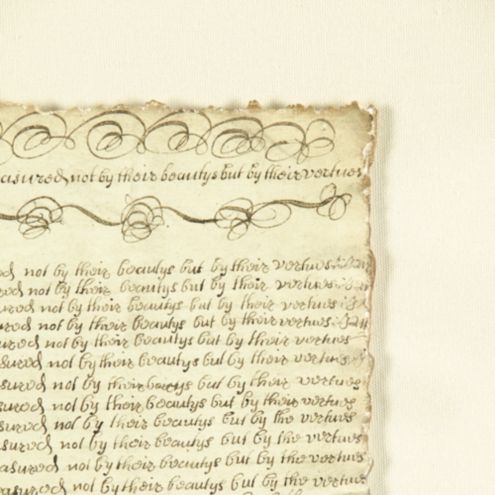 asured not by their beautys but by their vertues
not by their beautys but by their vertues
not by their beautys but by their vertues
ured not by their beautys but by their vertues
ured not by their beautys but by their vertues
ured not by their beautys but by their vertues
sured not by their beautys but by their vertues
sured not by their beautys but by their vertues
sured not by their beautys but by their vertues
sured not by their beautys but by the vertues
asured not by their beautys but by the vertues
asured not by their beautys but by the vertues
asured not by their beautys but by the vertues